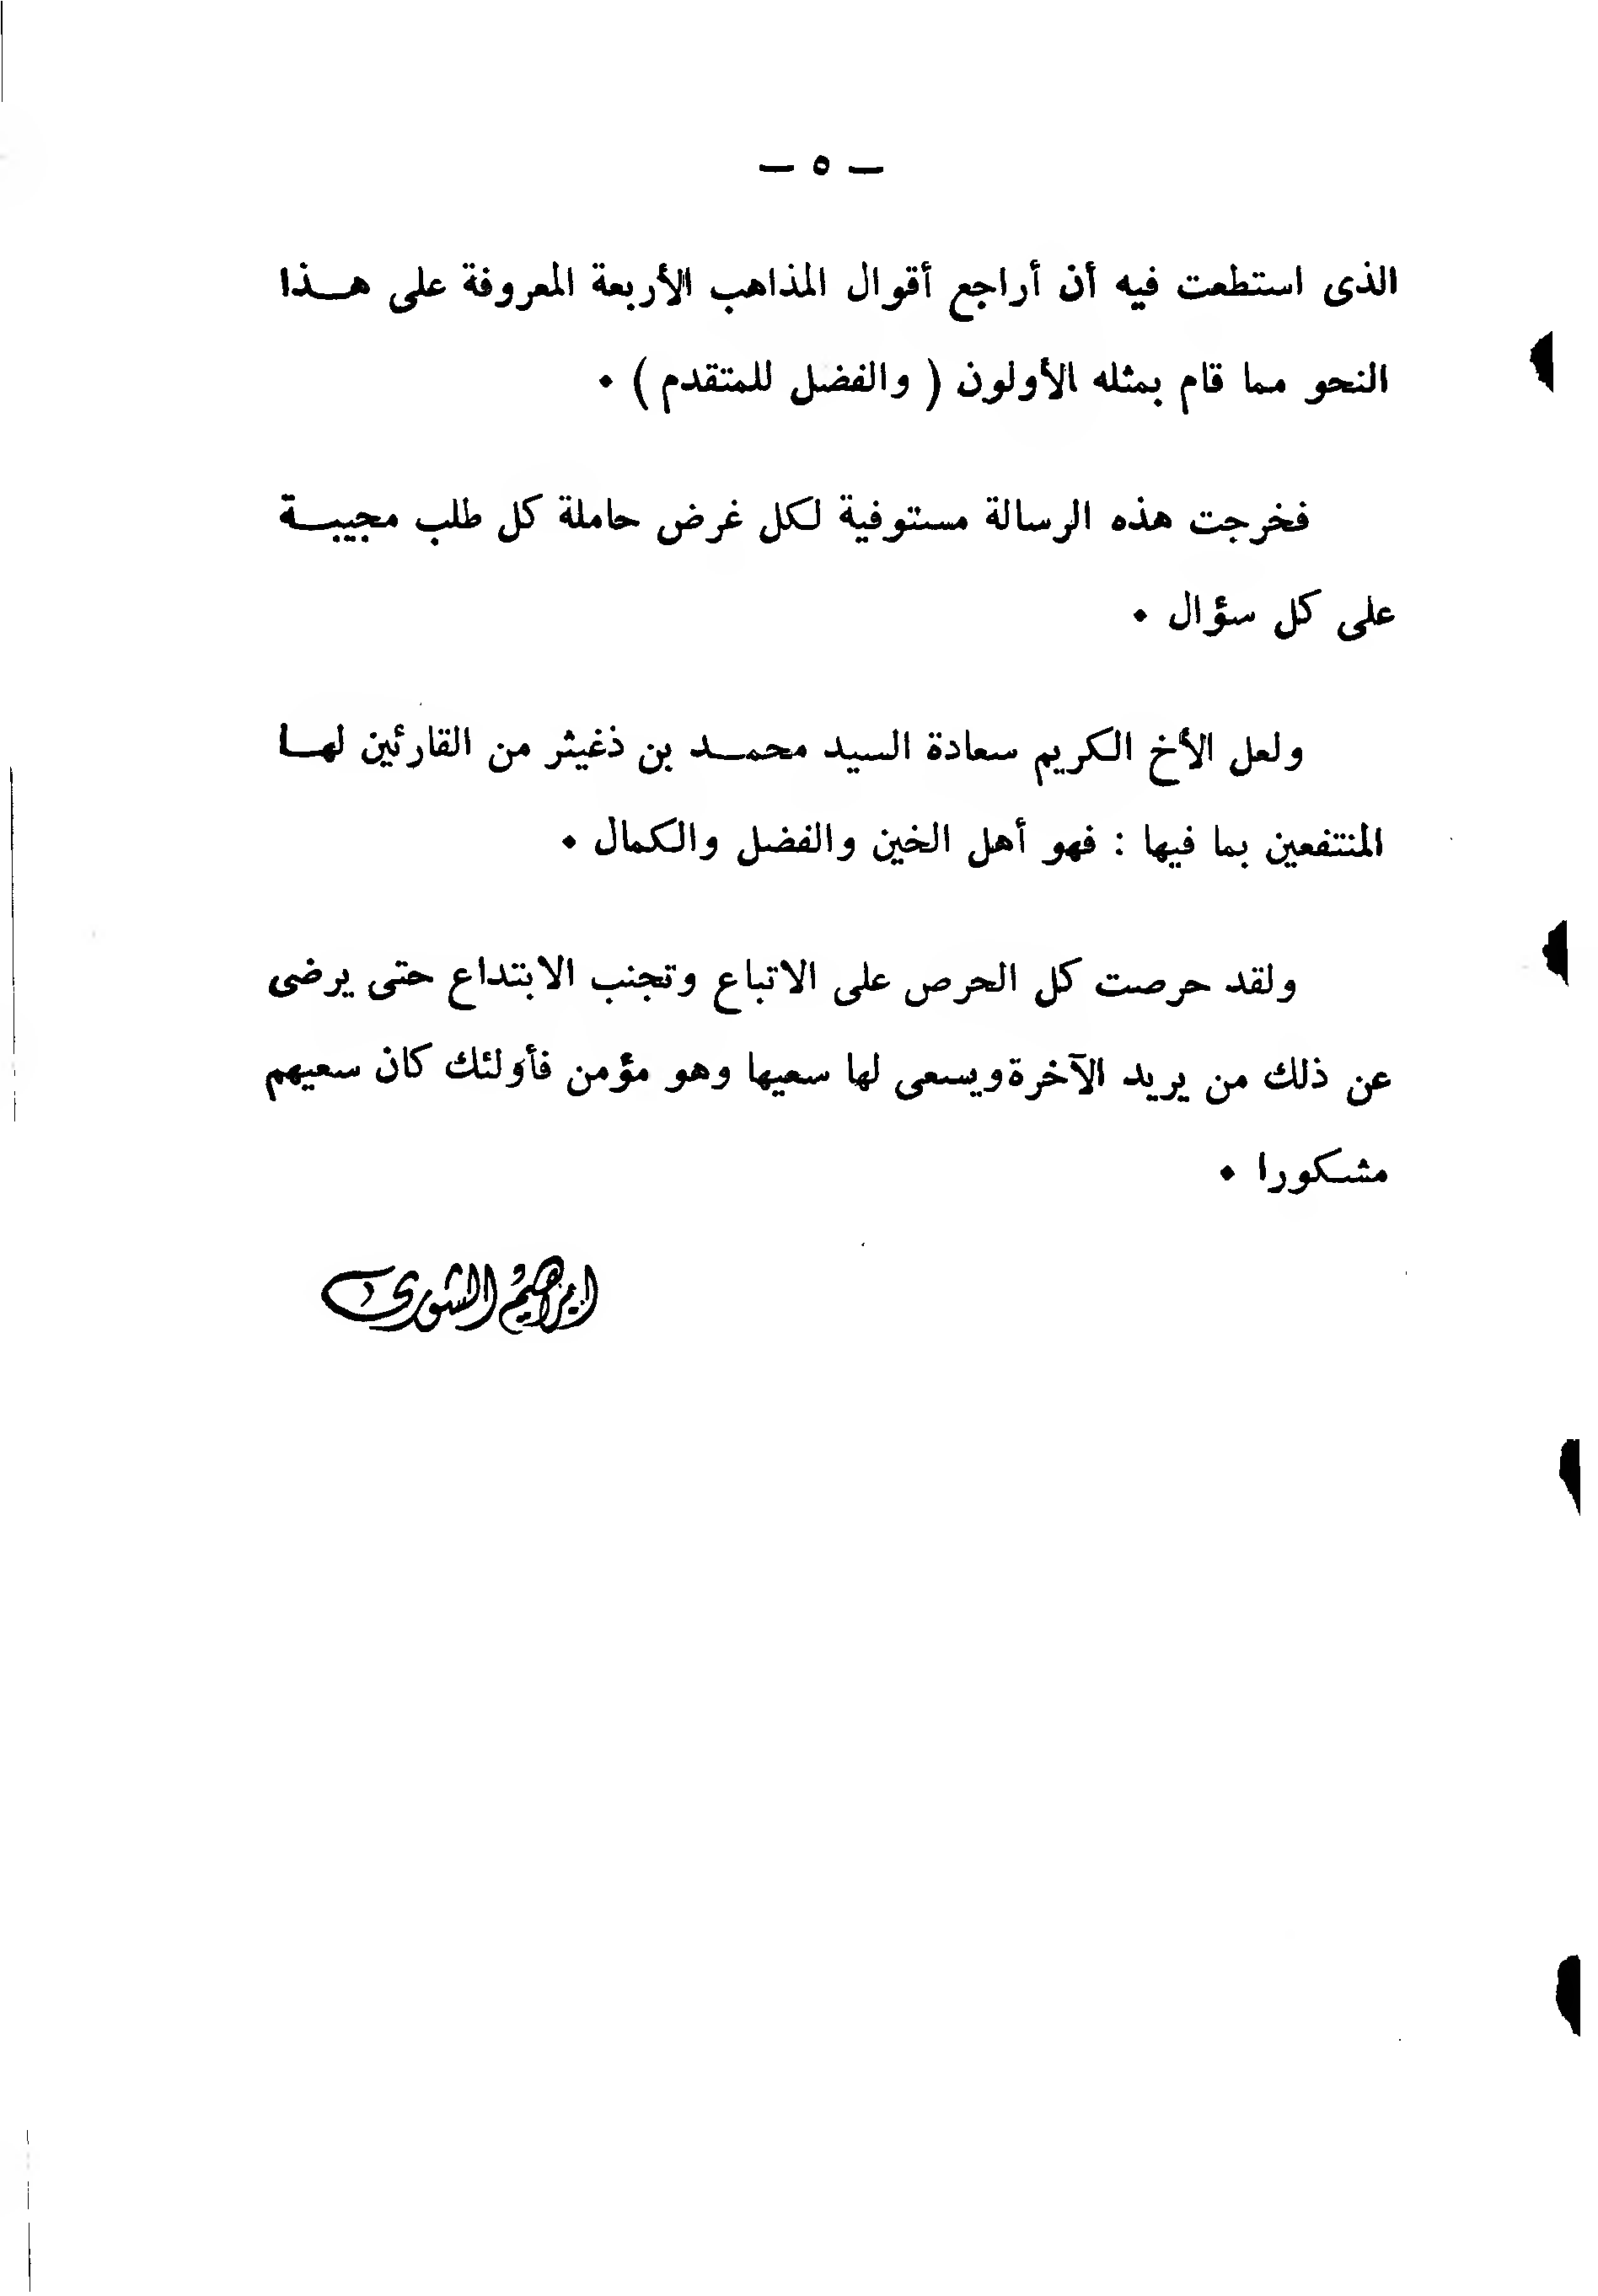 — ٥ —
الذى استطعت فيه أن أراجع أقوال المذاهب الأربعة المعروفة على هــذا
النحو مما قام بمثله الأولون ( والفضل للمتقدم ) .
فخرجت هذه الرسالة مستوفية لكل غرض حاملة كل طلب مجيبــة
على كل سؤال .
ولعل الأخ الكريم سعادة السيد محمــد بن ذغيثر من القارئين لهــا
المنتفعين بما فيها : فهو أهل الخين والفضل والكمال .
ولقد حرصت كل الحرص على الاتباع وتجنب الابتداع حتى يرضى
عن ذلك من يريد الآخرة ويسعى لها سعيها وهو مؤمن فأولئك كان سعيهم
مشكورا .
ابراهيم الشورى